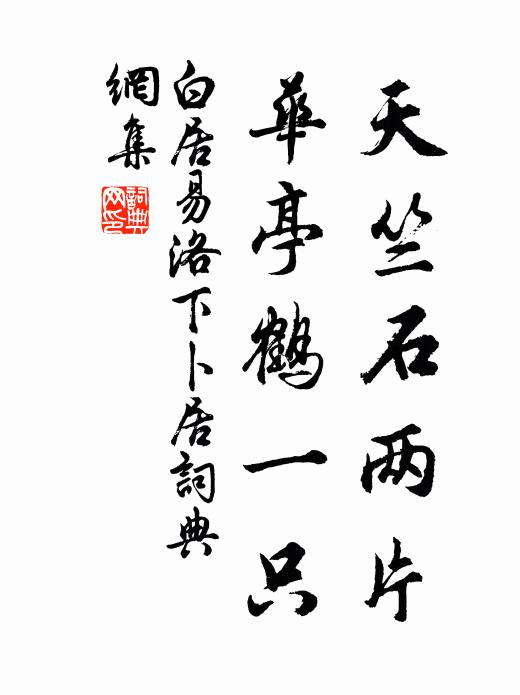 天竺石两片
華亭鶴一只
白居易洛下卜居詞典
網集
詞典
网印